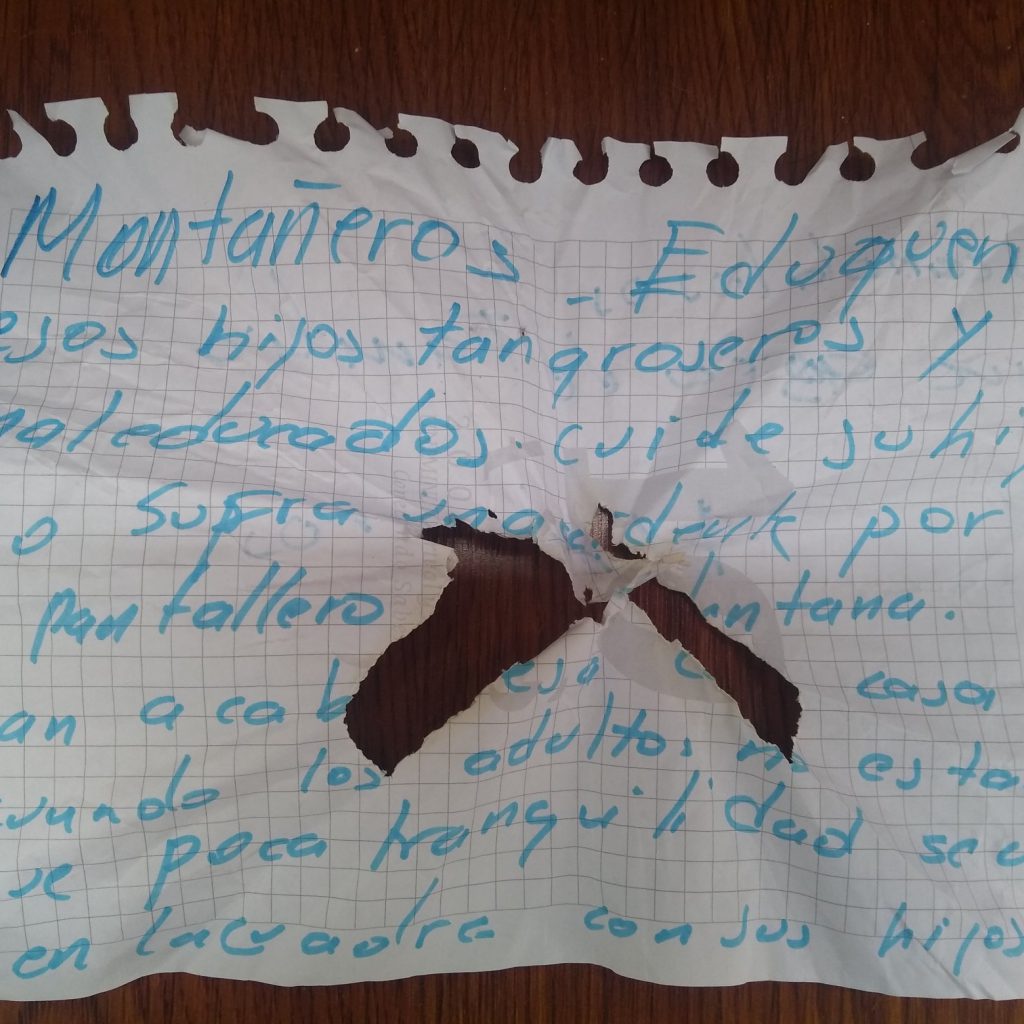 Montañeros Eduquen
esos hijos tan groseros Y
maleducados. cuide su hij
o sufra por
pantallero ntana.
an acab esa casa
cuando los adultos no esta
se poca tranquilidad se v
en lacuadra con sus hijos